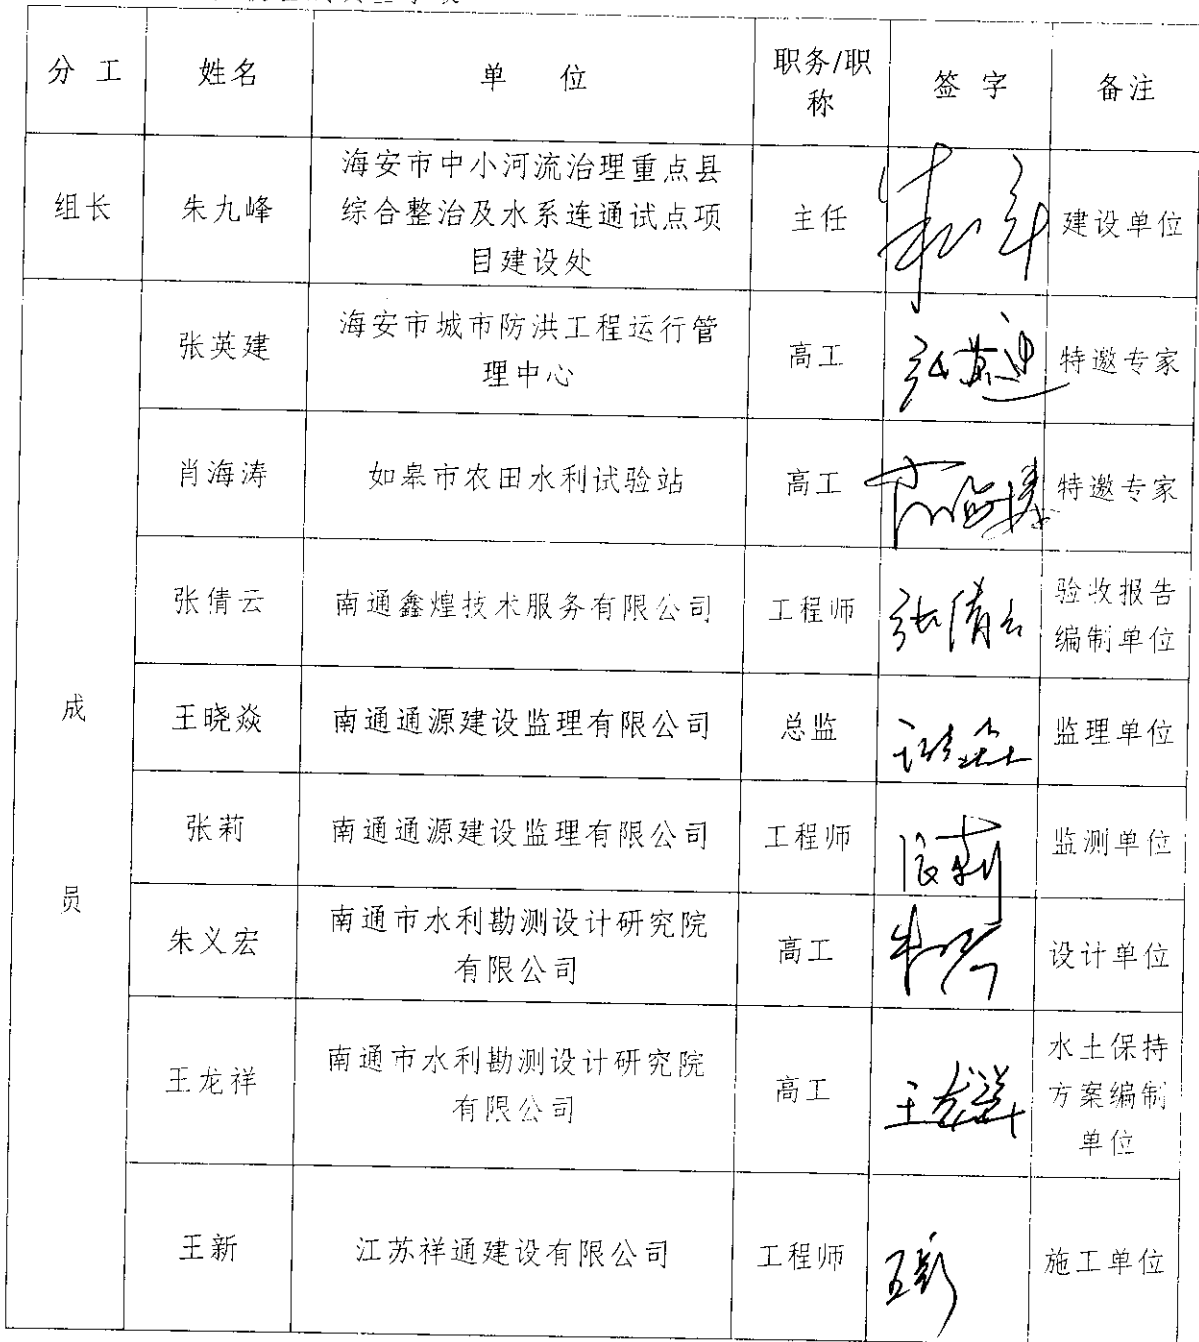 分 工 姓名 单 位 职务/职 签 字 备注
称
组长 朱九峰 海安市中小河流治理重点县 主任 建设单位
综合整治及水系连通试点项
目建设处
成
员
张英建 海安市城市防洪工程运行管 高工 张英建 特邀专家
理中心
肖海涛 如皋市农田水利试验站 高工 肖海涛 特邀专家
张倩云 南通鑫煌技术服务有限公司 工程师 张倩云 验收报告
编制单位
王晓焱 南通通源建设监理有限公司 总监 监理单位
张莉 南通通源建设监理有限公司 工程师 张莉 监测单位
朱义宏 南通市水利勘测设计研究院 高工 设计单位
有限公司
王龙祥 南通市水利勘测设计研究院 高工 王龙祥 水土保持
有限公司 方案编制
单位
王新 江苏祥通建设有限公司 工程师 王新 施工单位